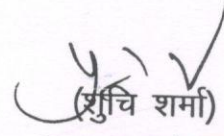 (शुचि शर्मा)